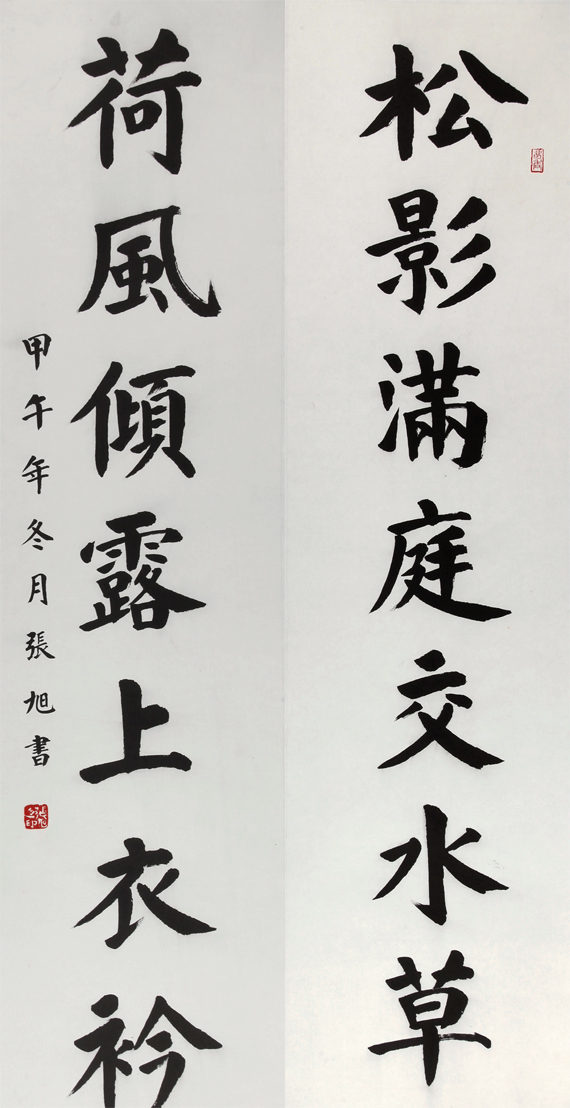 松影滿庭交水草
荷風傾露上衣衿
甲午年冬月張旭書